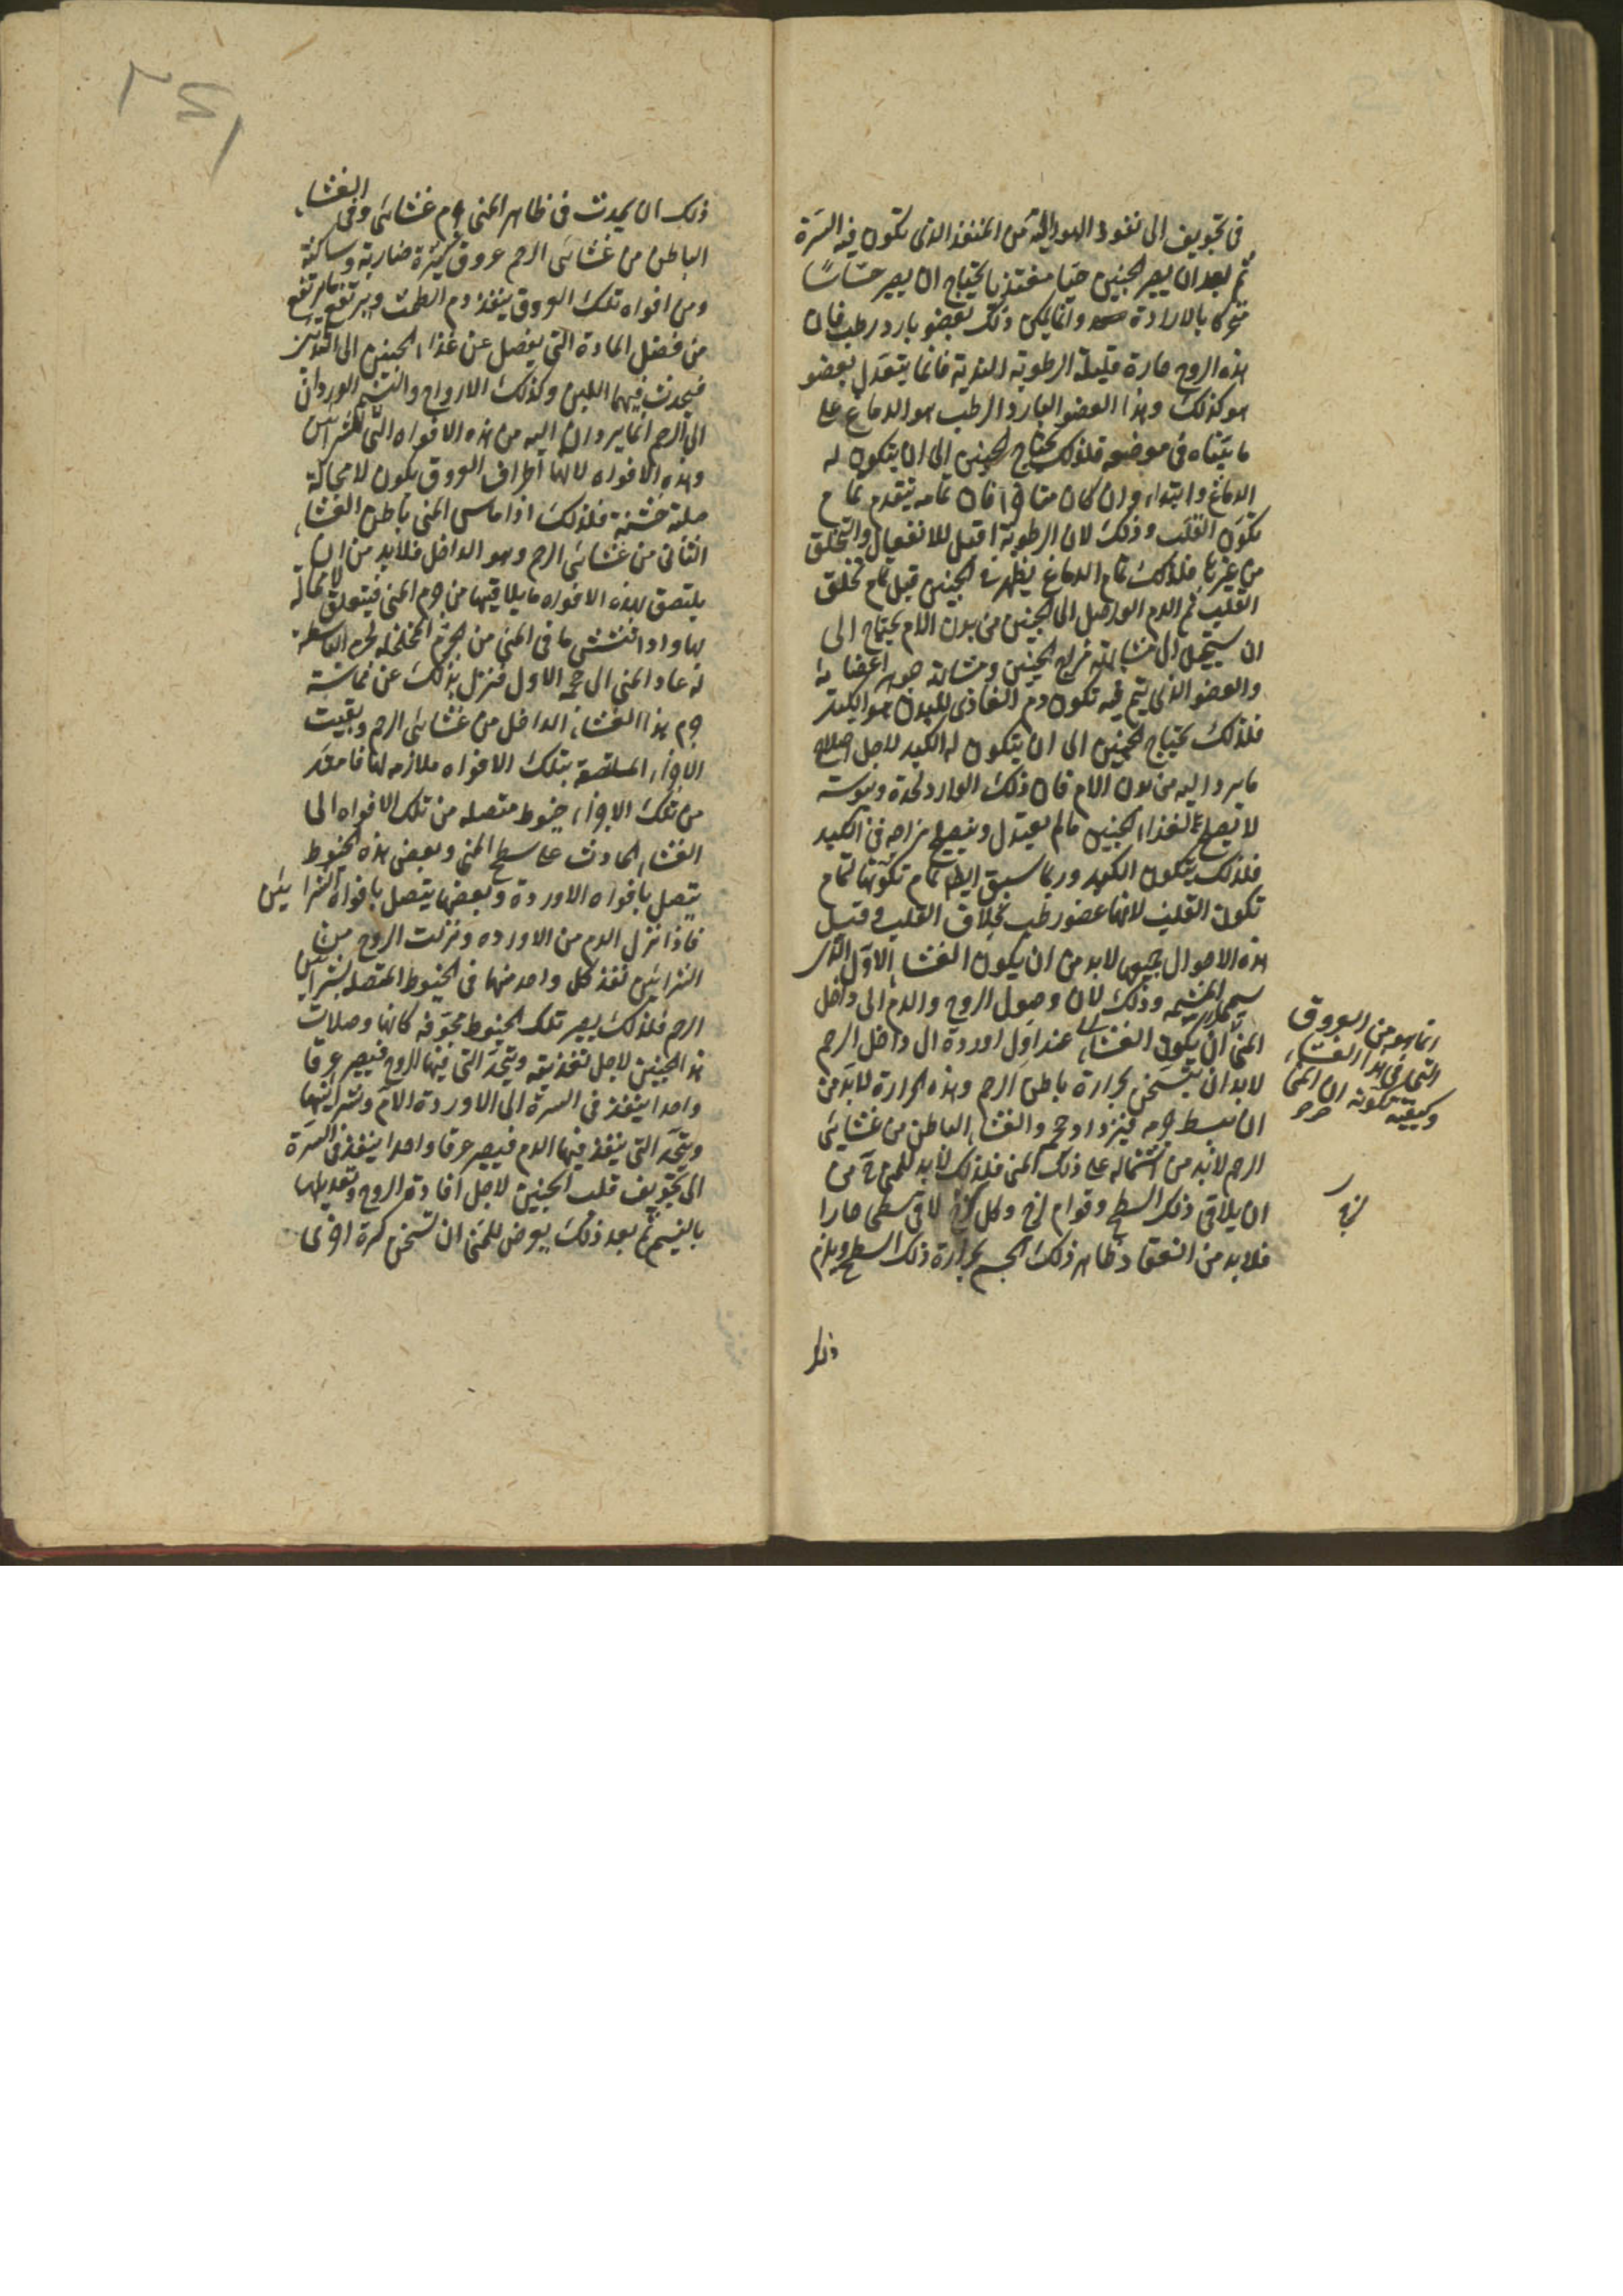 في تجويف الى نفوذ الهواء اليه من المنفذ الذي تكون فيه السرة
ثم بعد ان يصير الجنين حيا مغتذيا يحتاج ان يصير حساسا
متحركا بالارادة وانما يمكن ذلك بعضو بارد رطب فان
هذه الروح حارة قليلة الرطوبة فانما يتعدل بعضو
هو كذلك وهذا العضو البارد الرطب هو الدماغ على
ما بيناه في موضعه فلذلك يحتاج الجنين الى ان يتكون له
الدماغ وابتداؤه وان كان متاخرا فان تمامه يتقدم تمام
تكون القلب وذلك لان الرطوبة اقبل للانفعال والتخلق
من غيرها فلذلك تمام الدماغ يظهر في الجنين قبل تمام تخلق
القلب ثم الدم الواصل الى الجنين من بدن الام يحتاج الى
ان يستحيل الى مشابهة مزاج الجنين ومشابهة جوهر اعضائه
والعضو الذي يتم فيه تكون دم الغاذي للبدن هو الكبد
فلذلك يحتاج الجنين الى ان يتكون له الكبد لاجل اصلاح
ما يرد اليه من بدن الام فان ذلك الوارد لحدة ويبوسته
لا يصلح لغذاء الجنين ما لم يعتدل ويصلح مزاجه في الكبد
فلذلك يتكون الكبد وربما سبق ايضا تمام تكونها لتمام
تكون القلب لانها عضو رطب بخلاف القلب وقبل
هذه الاحوال جميعها لا بد من ان يكون الغشاء الاول الذي
يسمى المشيمة وذلك لان وصول الروح والدم الى داخل
المني ان يكون الغشاء عند اول اوردة الى داخل الرحم
لا بد ان يتسخن بحرارة باطن الرحم وهذه الحرارة لا بد من
ان تبسط جرمه فيزداد حجمه والغشاء الباطن من غشائي
الرحم لا بد من اشتماله على ذلك المني فلذلك لا بد للمني ح من
ان يلاقي ذلك السطح وقوامه لزج وكل لزج لاقى سطحا حارا
فلا بد من انعقاد ظاهر ذلك الجسم بحرارة ذلك السطح ويلزم
ذلك
انما هو من العروق
التي في هذا الغشاء
وكيفية تكونه ان المني
لزج
ذلك ان يحدث في ظاهر المني جرم غشائي وفي الغشاء
الباطن من غشائي الرحم عروق كثيرة ضاربة وساكنة
ومن افواه تلك العروق ينفذ دم الطمث ويرتفع ما يرتفع
من فضل المادة التي يفضل عن غذاء الجنين الى الثديين
فيحدث فيهما اللبن وكذلك الارواح والنسيم الواردان
الى الرحم انما يردان اليه من هذه الافواه التي للشرايين
وهذه الافواه لانها اطراف العروق يكون لا محالة
صلبة خشنة فلذلك اذا ماس المني باطن الغشاء
الثاني من غشائي الرحم وهو الداخل فلا بد من ان
يلتصق بهذه الافواه ما يلاقيها من جرم المني فيتعلق لا محالة
بها واذا انفش ما في المني من الجرم المخلخل لجرمه الباسطة
له عاد المني الى حجمه الاول فنزل بذلك عن مماسة
جرم هذا الغشاء الداخل من غشائي الرحم وبقيت
الاجزاء الملتصقة بتلك الافواه ملازمة لها فامتد
من تلك الاجزاء خيوط متصلة من تلك الافواه الى
الغشاء الحادث على سطح المني وبعض هذه الخيوط
يتصل بافواه الاوردة وبعضها يتصل بافواه الشرايين
فاذا نزل الدم من الاوردة ونزلت الروح من
الشرايين نفذ كل واحد منهما في الخيوط المتصلة بشرايين
الرحم فلذلك يصير تلك الخيوط مجوفة كانها وصلات
هذا الجنين لاجل تغذيته ويتحد التي فيها الروح فيصير عرقا
واحدا ينفذ في السرة الى الاوردة الام وشرايينها
ويتحد التي ينفذ فيها الدم فيصير عرقا واحدا ينفذ في السرة
الى تجويف قلب الجنين لاجل افادته الروح وتعديلها
بالنسيم ثم بعد ذلك يعرض للمني ان تسخن كرة اخرى